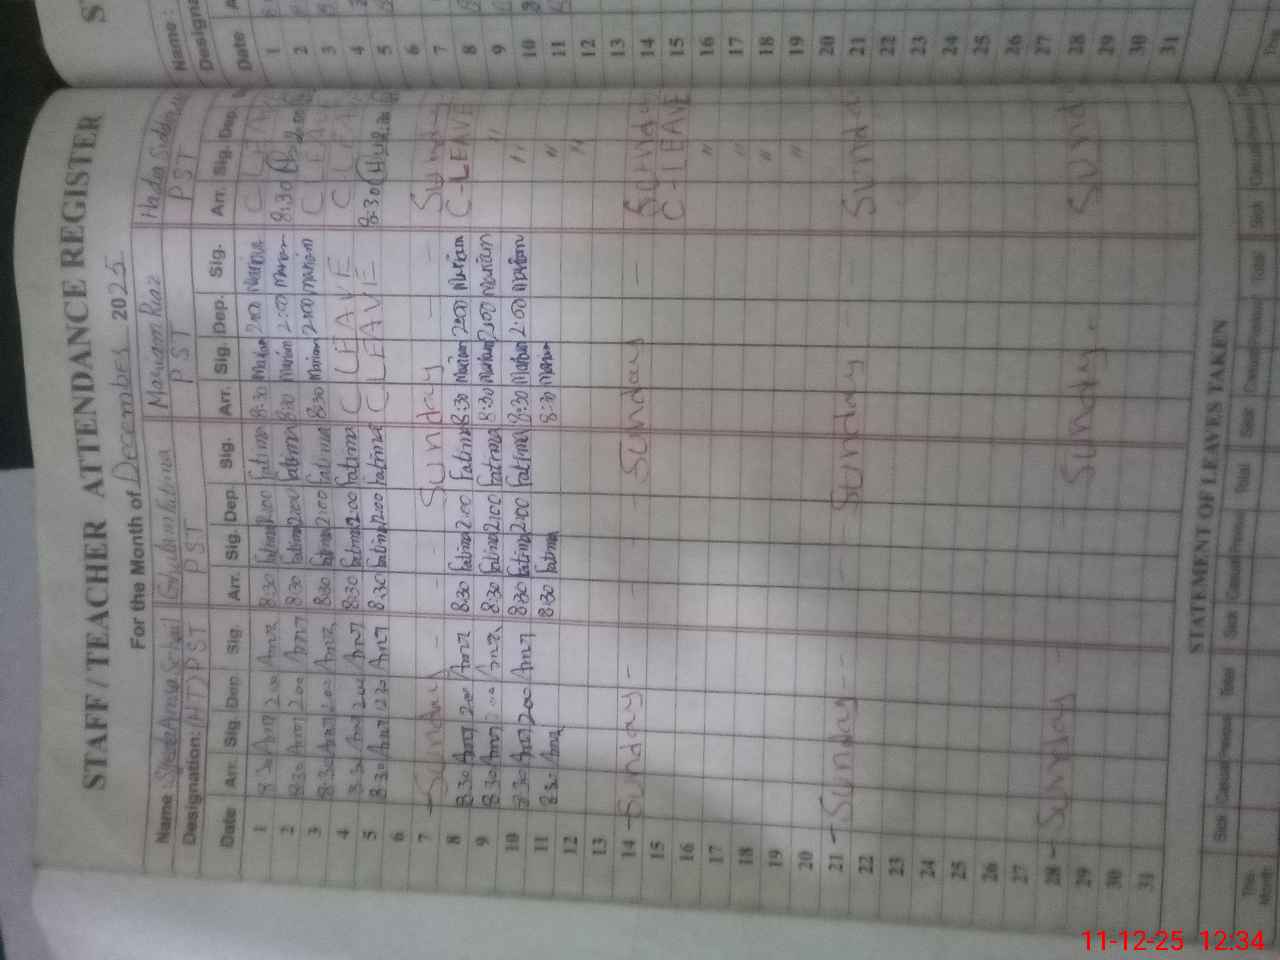 STAFF / TEACHER ATTENDANCE REGISTER
For the Month of December 2025
Name: Syeda Amna Fatima Mariam Riaz Hadia
Designation: (HT) PST PST PST PST
Date Arr. Sig. Dep. Sig. Arr. Sig. Dep. Sig. Arr. Sig. Dep. Sig. Arr. Sig. Dep.
1 8:30 Amna 2:00 Amna 8:30 Fatima 2:00 Fatima 8:30 Mariam 2:00 Mariam C LEAVE
2 8:30 Amna 2:00 Amna 8:30 Fatima 2:00 Fatima 8:30 Mariam 2:00 Mariam 8:30 2:00
3 8:30 Amna 2:00 Amna 8:30 Fatima 2:00 Fatima 8:30 Mariam 2:00 Mariam C LEAVE
4 8:30 Amna 2:00 Amna 8:30 Fatima 2:00 Fatima C LEAVE C LEAVE
5 8:30 Amna 12:30 Amna 8:30 Fatima 2:00 Fatima C LEAVE 8:30 12:30
6
7 - Sunday - - - Sunday - - Sunday - - Sunday
8 8:30 Amna 2:00 Amna 8:30 Fatima 2:00 Fatima 8:30 Mariam 2:00 Mariam C-LEAVE
9 8:30 Amna 2:00 Amna 8:30 Fatima 2:00 Fatima 8:30 Mariam 2:00 Mariam "
10 8:30 Amna 2:00 Amna 8:30 Fatima 2:00 Fatima 8:30 Mariam 2:00 Mariam "
11 8:30 Amna 8:30 Fatima 8:30 Mariam "
12 "
13
14 - Sunday - - - - Sunday - - Sunday
15 C-LEAVE
16 "
17 "
18 "
19 "
20
21 - Sunday - - - - Sunday - - Sunday
22
23
24
25
26
27
28 - Sunday - Sunday - Sunday
29
30
31
STATEMENT OF LEAVES TAKEN
Sick Casual Previous Total Sick Casual Previous Total Sick Casual Previous Total Sick Casual
This Month
Name:
Date
1
2
3
4
5
6
7
8
9
10
11
12
13
14
15
16
17
18
19
20
21
22
23
24
25
26
27
28
29
30
31
11-12-25 12:34